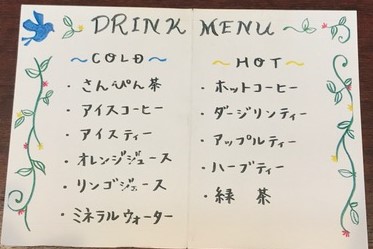 DRINK MENU
～COLD～
・さんぴん茶
・アイスコーヒー
・アイスティー
・オレンジジュース
・リンゴジュース
・ミネラルウォーター
～HOT～
・ホットコーヒー
・ダージリンティー
・アップルティー
・ハーブティー
・緑 茶